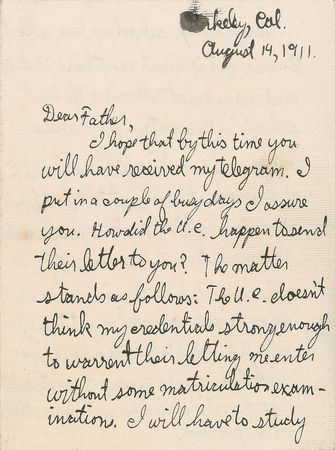 rkeley, Cal.
August 14, 1911.
Dear Father,
I hope that by this time you
will have received my telegram. I
put in a couple of busy days I assure
you. How did the U.C. happen to send
their letter to you? The matter
stands as follows: The U.C. doesn't
think my credentials strong enough
to warrent their letting me enter
without some matriculation exam-
ination. I will have to study